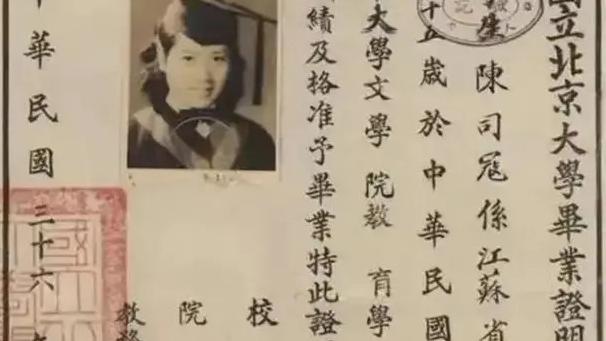 國立北京大學畢業證明
生陳司寇係江蘇省
十五歲於中華民國
大學文學院教育學
績及格准予畢業特此證
校
院
教務
中華民國三十六年